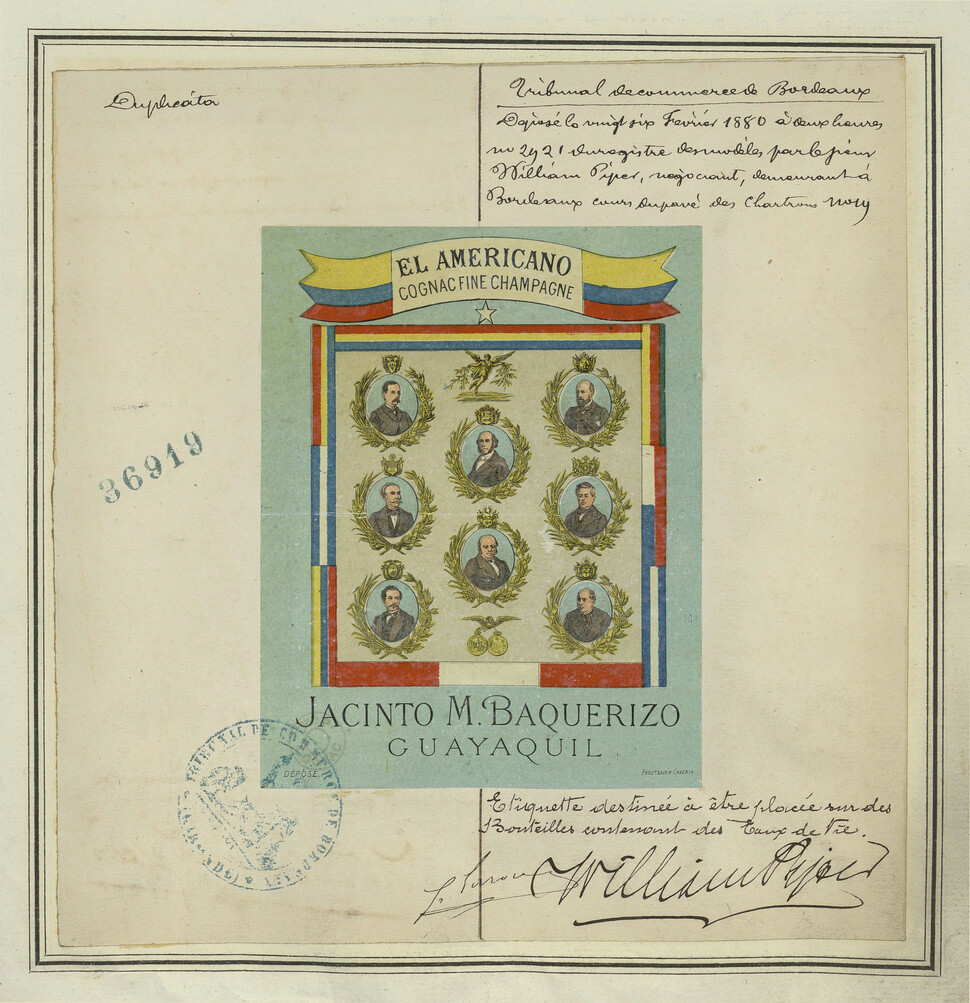 Duplicata
Tribunal de commerce de Bordeaux
Déposé le vingt six Février 1880 à deux heures
no 2921 du registre des modèles par le sieur
William Piper, négociant, demeurant à
Bordeaux cours du pavé des Chartrons no
EL AMERICANO
COGNAC FINE CHAMPAGNE
36919
JACINTO M. BAQUERIZO
GUAYAQUIL
DÉPOSÉ
TRIBUNAL DE COMMERCE DE BORDEAUX
Etiquette destinée à être placée sur des
Bouteilles contenant des Eaux de Vie.
William Piper